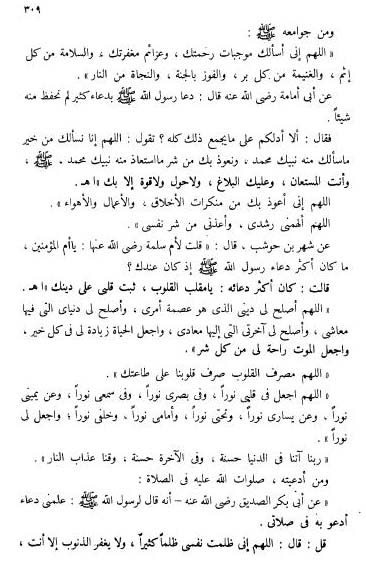 ٣٠٩
ومن جوامعه ﷺ :
« اللهم إنى أسألك موجبات رحمتك ، وعزائم مغفرتك ، والسلامة من كل
إثم ، والغنيمة من كل بر ، والفوز بالجنة ، والنجاة من النار» .
عن أبى أمامة رضى الله عنه قال : دعا رسول الله ﷺ بدعاء كثير لم نحفظ منه
شيئاً .
فقال : ألا أدلكم على مايجمع ذلك كله ؟ تقول : اللهم إنا نسألك من خير
ماسألك منه نبيك محمد ، ونعوذ بك من شر مااستعاذ منه نبيك محمد . ﷺ ،
وأنت المستعان ، وعليك البلاغ ، ولاحول ولاقوة إلا بك» اهـ .
اللهم إنى أعوذ بك من منكرات الأخلاق ، والأعمال والأهواء» .
اللهم ألهمنى رشدى ، وأعذنى من شر نفسى» .
عن شهر بن حوشب ، قال : « قلت لأم سلمة رضى الله عنها : ياأم المؤمنين ،
ما كان أكثر دعاء رسول الله ﷺ إذ كان عندك ؟
قالت : كان أكثر دعائه : يامقلب القلوب ، ثبت قلبى على دينك» اهـ .
« اللهم أصلح لى دينى الذى هو عصمة أمرى ، وأصلح لى دنياى التى فيها
معاشى ، وأصلح لى آخرتى التى إليها معادى ، واجعل الحياة زيادة لى فى كل خير ،
واجعل الموت راحة لى من كل شر» .
« اللهم مصرف القلوب صرف قلوبنا على طاعتك» .
« اللهم اجعل فى قلبى نوراً ، وفى بصرى نوراً ، وفى سمعى نوراً ، وعن يمينى
نوراً ، وعن يسارى نوراً ، وتحتى نوراً ، وأمامى نوراً ، وخلفى نوراً ؛ واجعل لى
نوراً» .
« ربنا آتنا فى الدنيا حسنة ، وفى الآخرة حسنة ، وقنا عذاب النار» .
ومن أدعيته ، صلوات الله عليه فى الصلاة :
« عن أبى بكر الصديق رضى الله عنه – أنه قال لرسول الله ﷺ : علمنى دعاء
أدعو به فى صلاتى .
قل : قال : اللهم إنى ظلمت نفسى ظلماً كثيراً ، ولا يغفر الذنوب إلا أنت ،